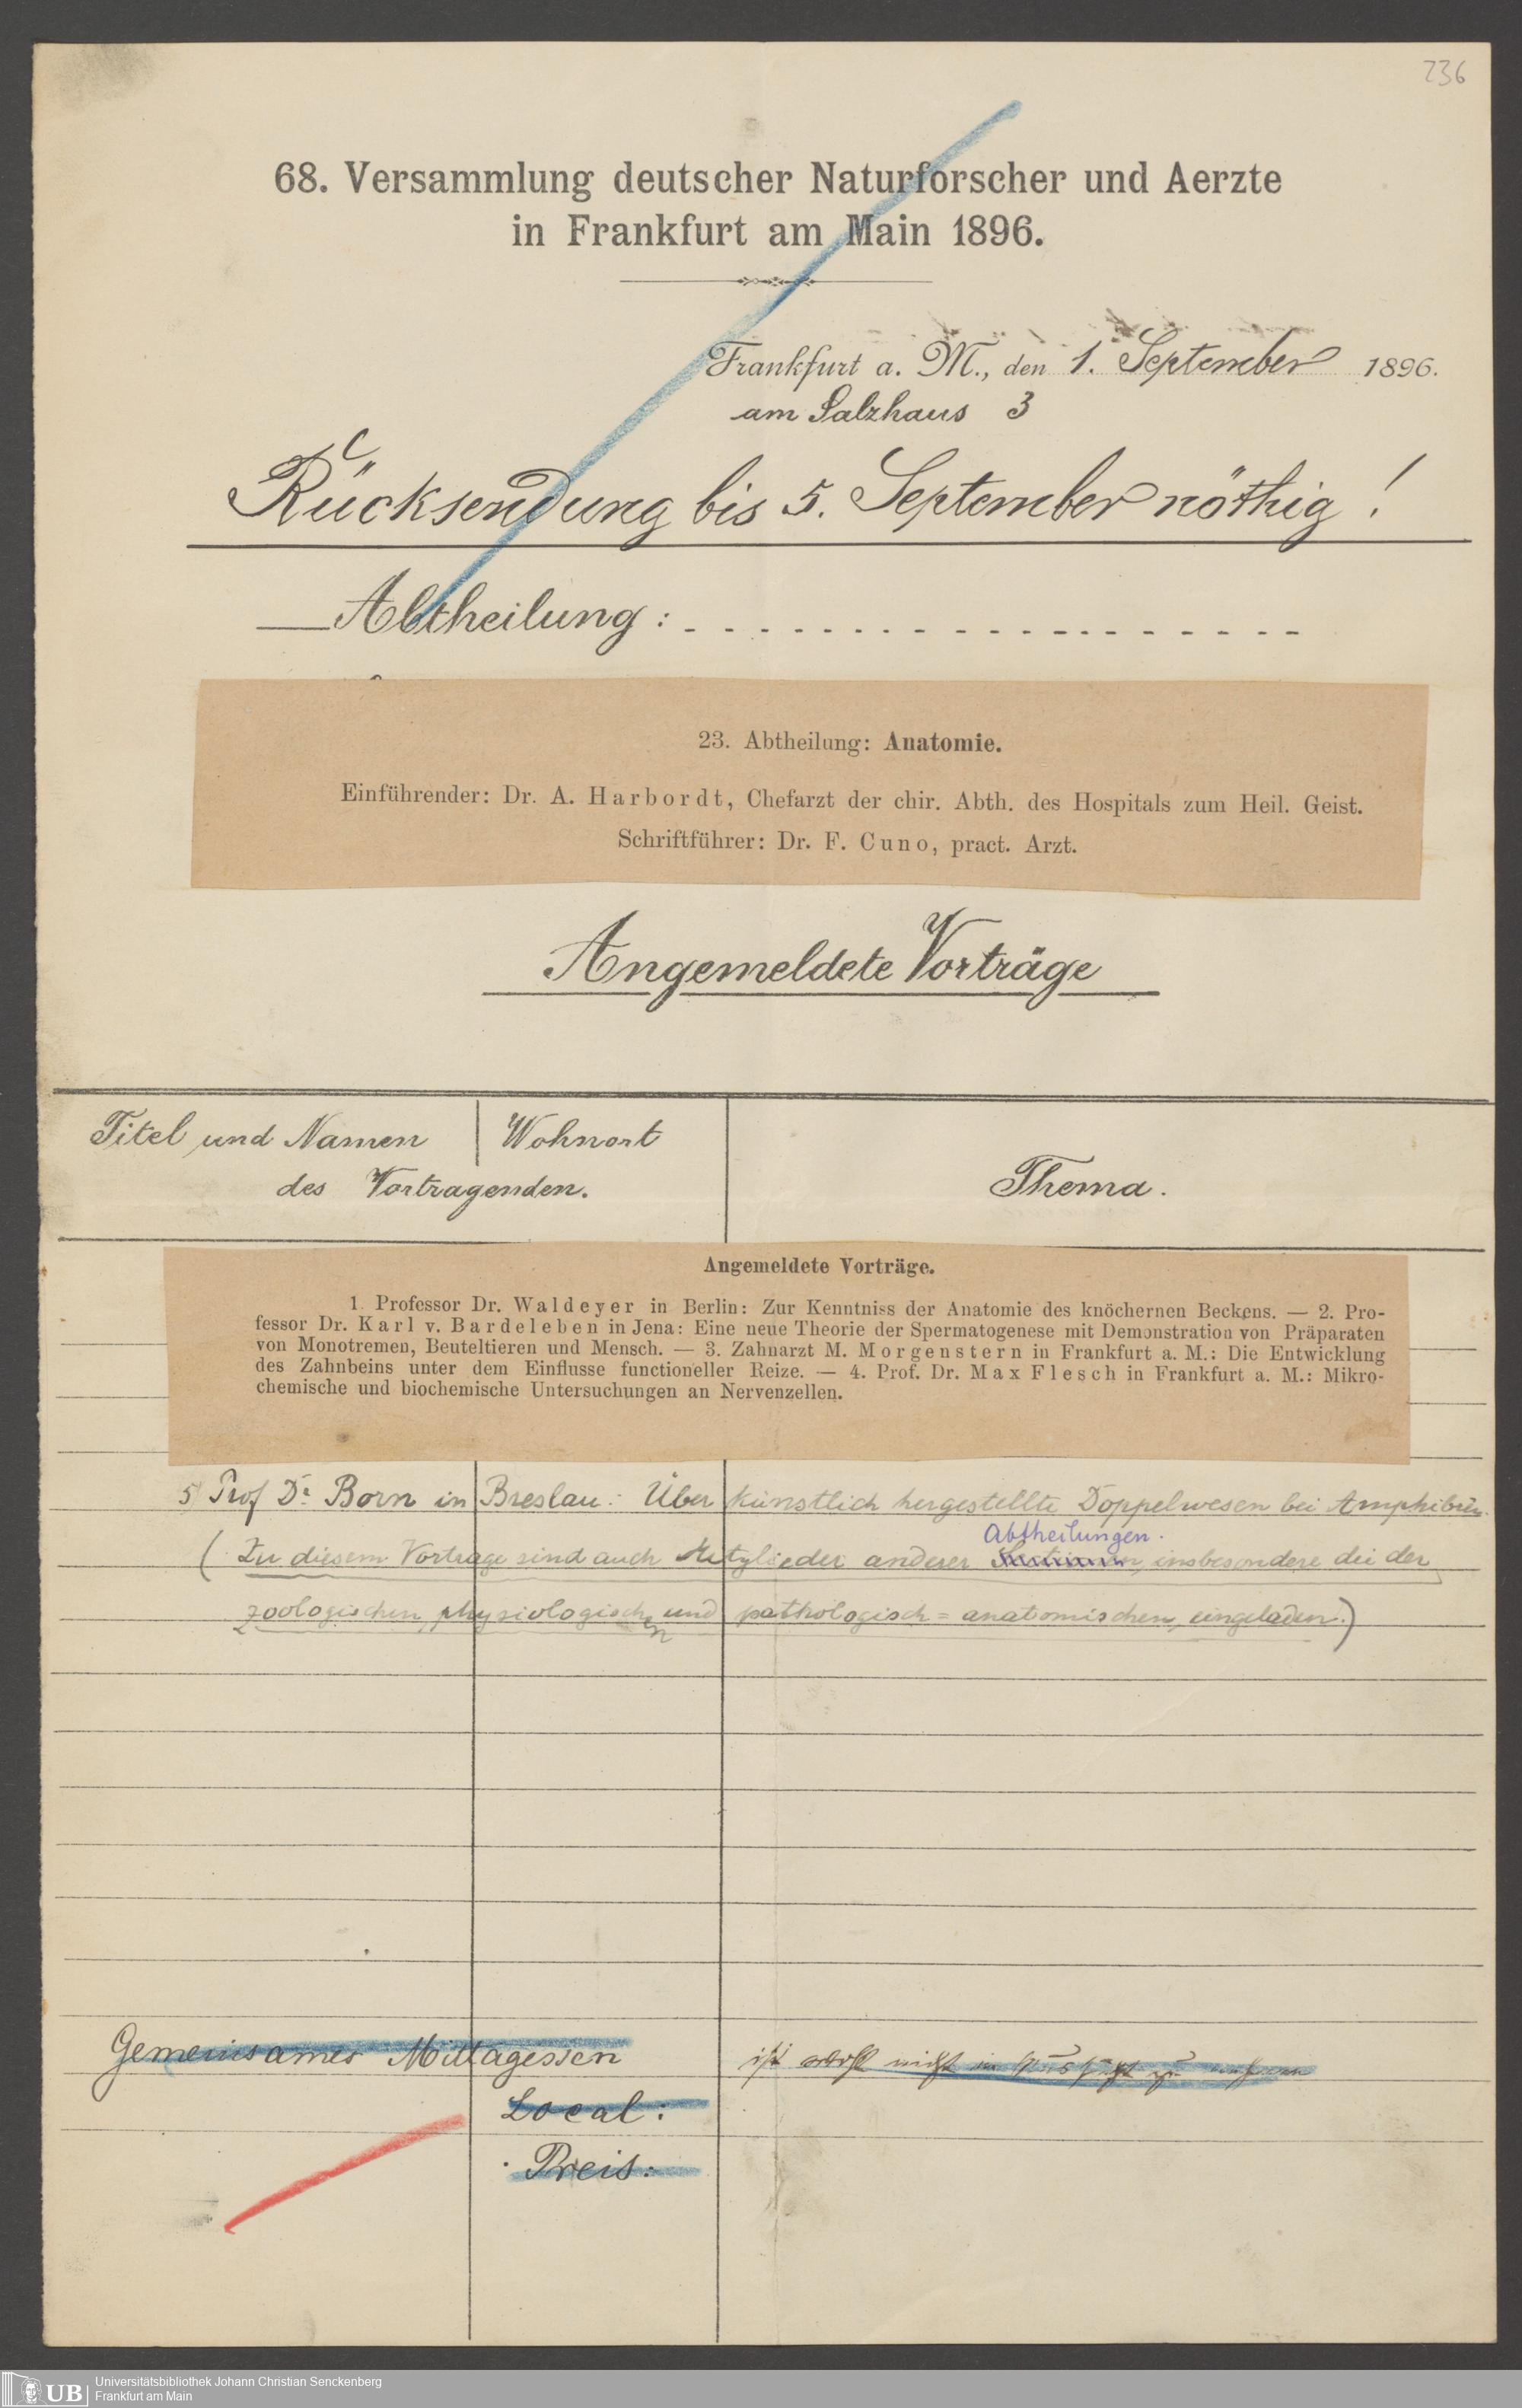 236
68. Versammlung deutscher Naturforscher und Aerzte
in Frankfurt am Main 1896.
Frankfurt a. M., den 1. September 1896.
am Salzhaus 3
Rücksendung bis 5. September nöthig!
Abtheilung: . . . . . . . . . . . . . . . . . .
23. Abtheilung: Anatomie.
Einführender: Dr. A. Harbordt, Chefarzt der chir. Abth. des Hospitals zum Heil. Geist.
Schriftführer: Dr. F. Cuno, pract. Arzt.
Angemeldete Vorträge
Titel und Namen Wohnort
des Vortragenden.
Thema.
Angemeldete Vorträge.
1. Professor Dr. Waldeyer in Berlin: Zur Kenntniss der Anatomie des knöchernen Beckens. — 2. Pro-
fessor Dr. Karl v. Bardeleben in Jena: Eine neue Theorie der Spermatogenese mit Demonstration von Präparaten
von Monotremen, Beuteltieren und Mensch. — 3. Zahnarzt M. Morgenstern in Frankfurt a. M.: Die Entwicklung
des Zahnbeins unter dem Einflusse functioneller Reize. — 4. Prof. Dr. Max Flesch in Frankfurt a. M.: Mikro-
chemische und biochemische Untersuchungen an Nervenzellen.
5) Prof Dr. Born in Breslau: Über künstlich hergestellte Doppelwesen bei Amphibien.
Abtheilungen.
(Zu diesem Vortrage sind auch Mitglieder anderer insbesondere die der
zoologischen, physiologischen und pathologisch=anatomischen, eingeladen.)
Gemeinsames Mittagessen
ist nicht in
Local:
Preis:
UB
Universitätsbibliothek Johann Christian Senckenberg
Frankfurt am Main